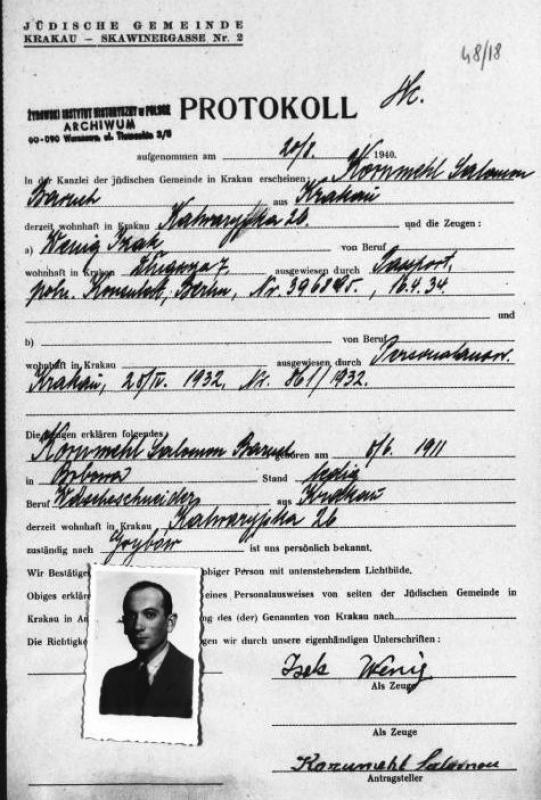 JÜDISCHE GEMEINDE
KRAKAU — SKAWINERGASSE Nr. 2
48/18
ŻYDOWSKI INSTYTUT HISTORYCZNY w POLSCE
ARCHIWUM
00-090 Warszawa, ul. Tłomackie 3/5
PROTOKOLL
aufgenommen am 20/8. 1940.
In der Kanzlei der jüdischen Gemeinde in Krakau erscheinen: Kornmehl Salomon
Baruch aus Krakau
derzeit wohnhaft in Krakau Kalwaryjska 26. und die Zeugen:
a) Wenig Izak von Beruf
wohnhaft in Krakau 7. ausgewiesen durch Passport,
poln. Konsulat, Berlin, Nr. 16.4.34.
und
b) von Beruf
wohnhaft in Krakau ausgewiesen durch Personalausw.
Krakau, 28/IV. 1932, Nr. 861/1932.
Die Obigen erklären folgendes:
Kornmehl Salomon Baruch geboren am 8/6. 1911
in Bobowa Stand ledig
Beruf Wäscheschneider aus Krakau
derzeit wohnhaft in Krakau Kalwaryjska 26
zuständig nach Grybów ist uns persönlich bekannt.
Wir Bestätige obiger Person mit untenstehendem Lichtbilde.
Obiges erklär eines Personalausweises von seiten der Jüdischen Gemeinde in
Krakau in An ng des (der) Genannten von Krakau nach
Die Richtigke gen wir durch unsere eigenhändigen Unterschriften:
Izak Wenig
Als Zeuge
Als Zeuge
Kornmehl Salomon
Antragsteller